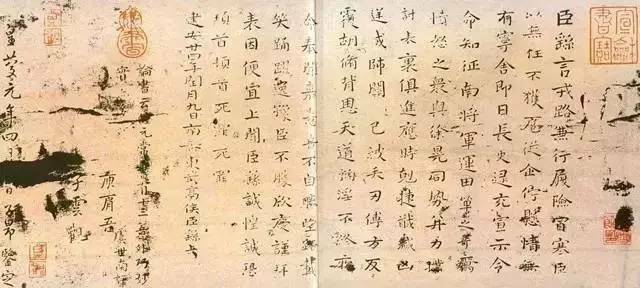 臣繇言戎路兼行履險冒寒臣
以無任不獲扈從企佇懸情無
有寧舍即日長史逯充宣示令
命知征南將軍運田單之奇厲
憤怒之眾與徐晃同勢并力撲
討表裏俱進應時剋捷馘滅凶
逆賊帥關 已被矢刃傅方反
覆胡脩背恩天道禍淫不終厥
命奉聞嘉憙喜不自勝望路載
笑踊躍逸豫臣不勝欣慶謹拜
表因便宜上聞臣繇誠惶誠恐
頓首頓首死罪死罪
建安廿四年閏月九日南蕃東武亭侯臣繇上
虞世南
庾肩吾
子雲觀